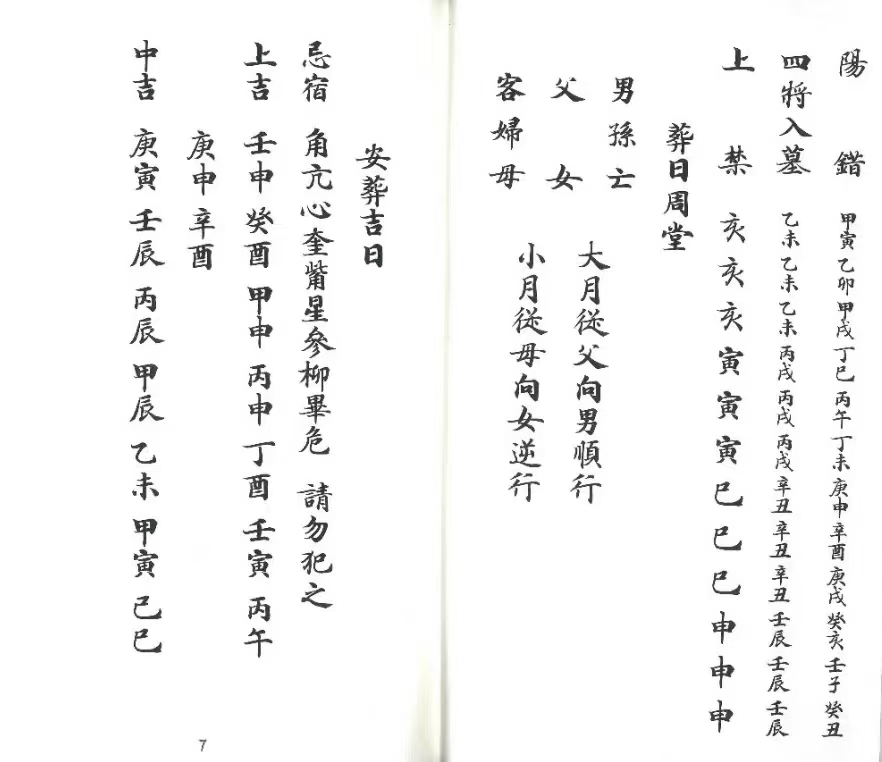 陽錯 甲寅 乙卯 甲戌 丁巳 丙午 丁未 庚申 辛酉 庚戌 癸亥 壬子 癸丑
四將入墓 乙未 乙未 乙未 丙戌 丙戌 丙戌 辛丑 辛丑 辛丑 壬辰 壬辰 壬辰
上禁 亥 亥 亥 寅 寅 寅 巳 巳 巳 申 申 申
葬日周堂
男孫亡
父 女
客婦母
大月従父向男順行
小月従母向女逆行
安葬吉日
忌宿 角亢心奎觜星參柳畢危 請勿犯之
上吉 壬申 癸酉 甲申 丙申 丁酉 壬寅 丙午
庚申 辛酉
中吉 庚寅 壬辰 丙辰 甲辰 乙未 甲寅 己巳
7